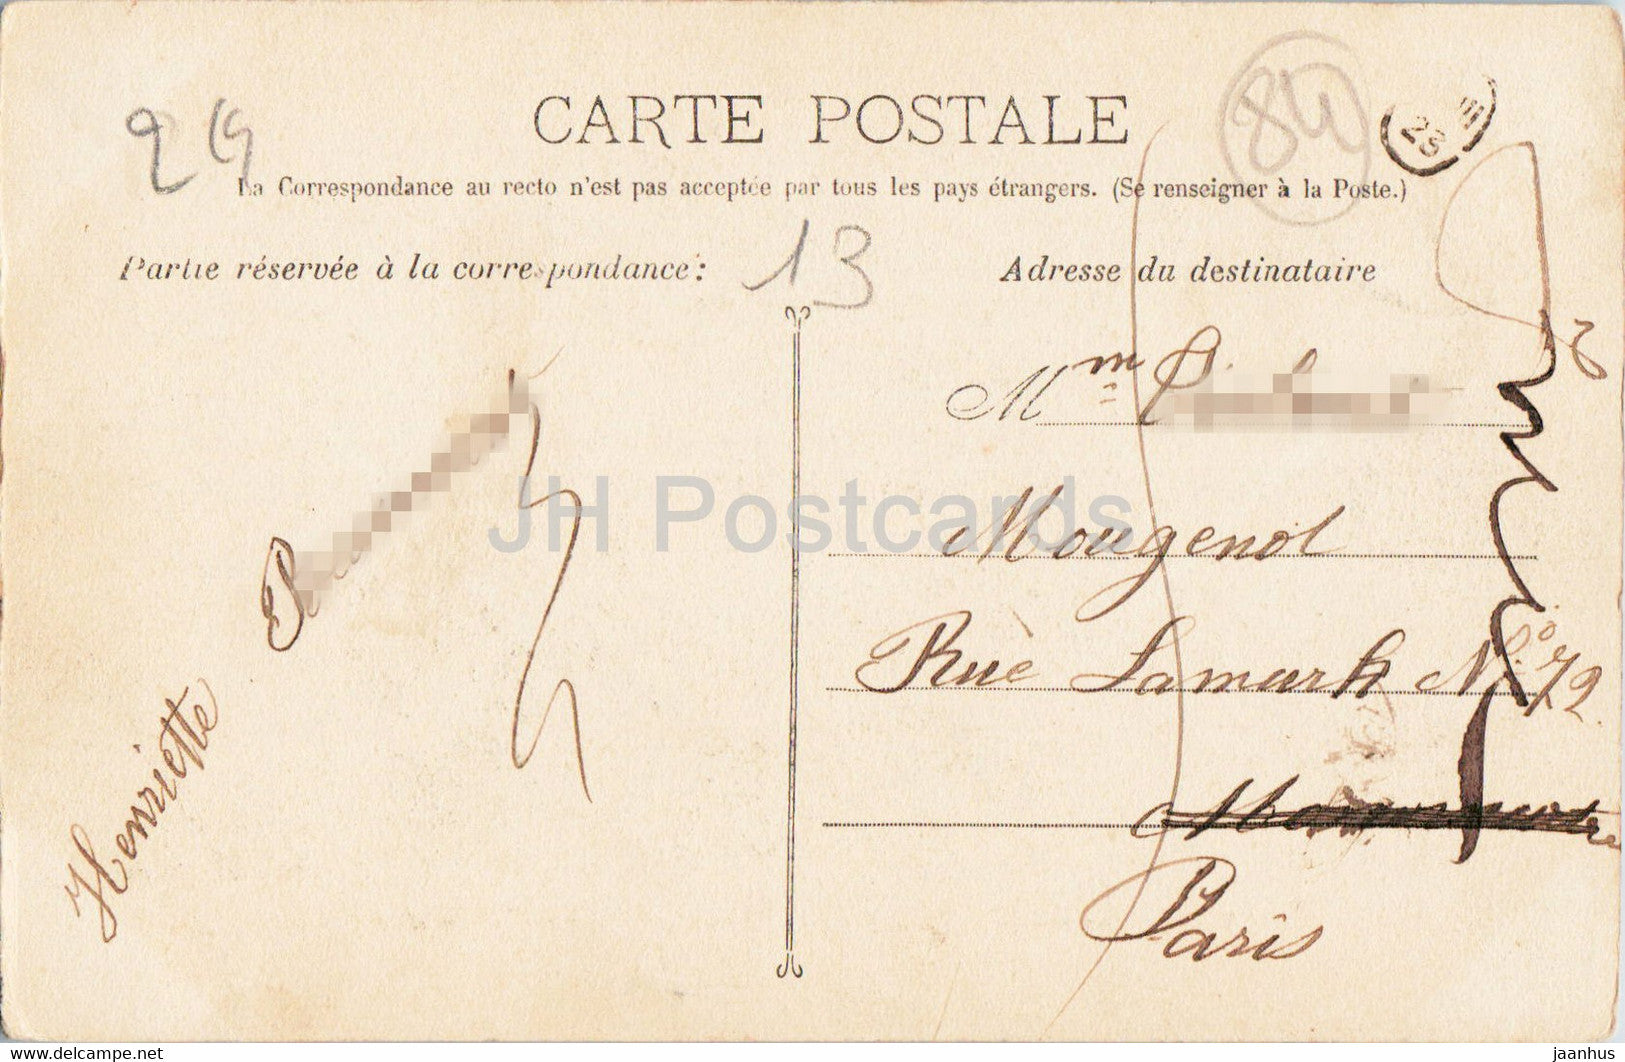 CARTE POSTALE
84
III
23
29
La Correspondance au recto n'est pas acceptée par tous les pays étrangers. (Se renseigner à la Poste.)
13
Partie réservée à la correspondance:
Adresse du destinataire
Mme
Mougenot
Rue Lamark No 72
Paris
Henriette
JH Postcards
www.delcampe.net
jaanhus